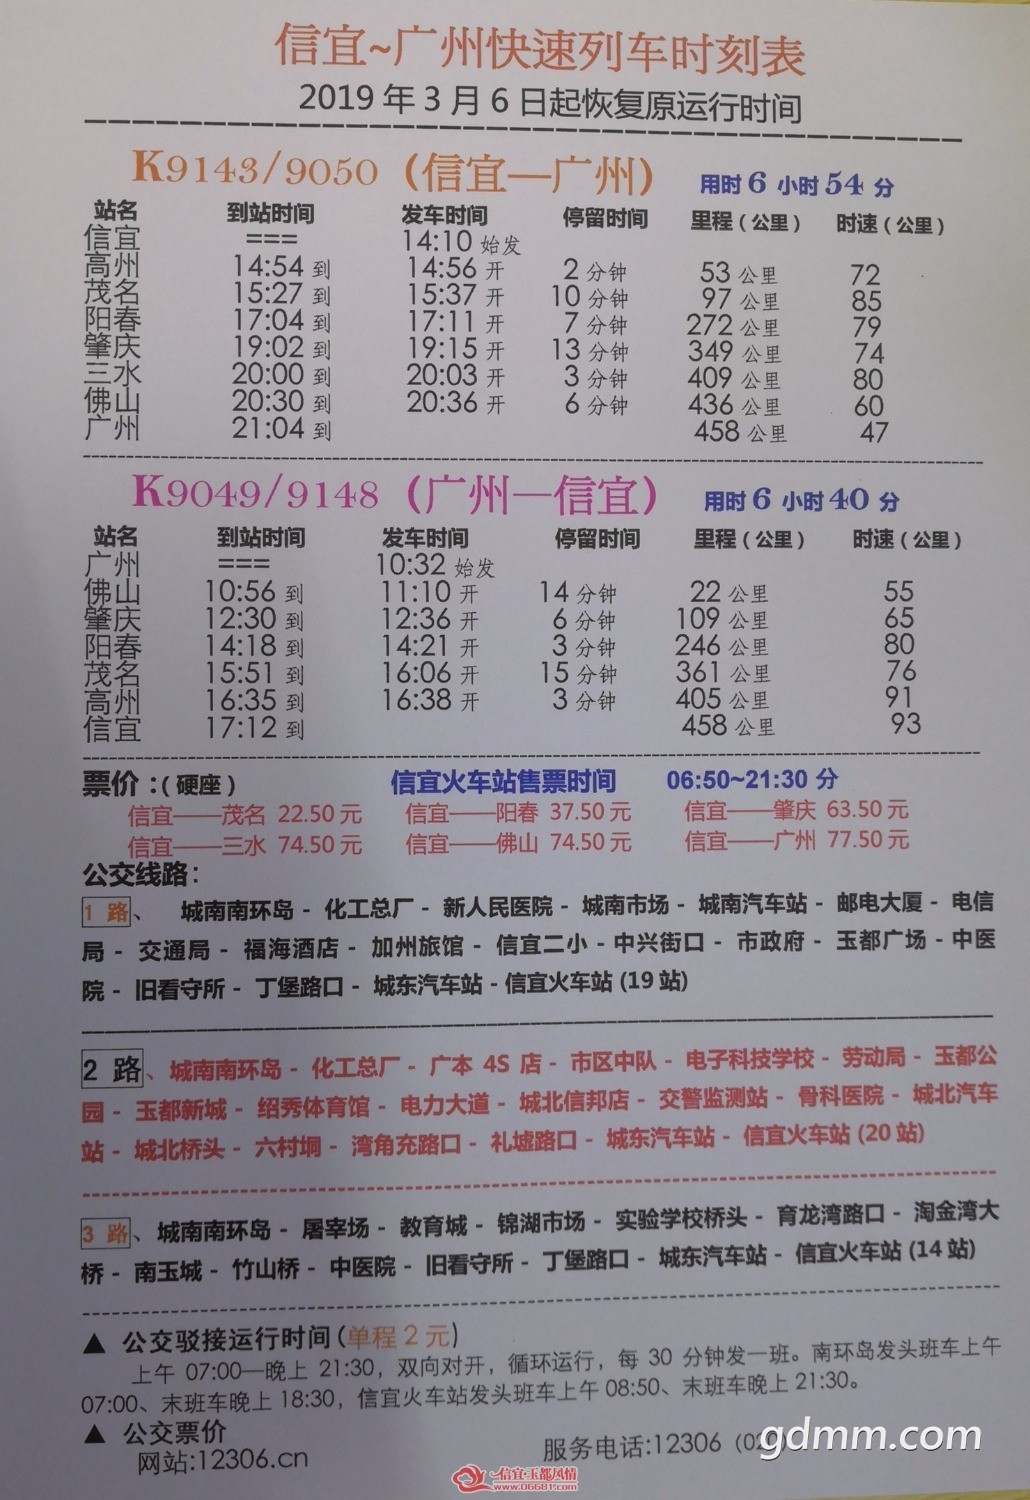 信宜~广州快速列车时刻表
2019 年 3 月 6 日起恢复原运行时间
K9143/9050（信宜—广州） 用时 6 小时 54 分
站名 到站时间 发车时间 停留时间 里程（公里） 时速（公里）
信宜 === 14:10 始发
高州 14:54 到 14:56 开 2 分钟 53 公里 72
茂名 15:27 到 15:37 开 10 分钟 97 公里 85
阳春 17:04 到 17:11 开 7 分钟 272 公里 79
肇庆 19:02 到 19:15 开 13 分钟 349 公里 74
三水 20:00 到 20:03 开 3 分钟 409 公里 80
佛山 20:30 到 20:36 开 6 分钟 436 公里 60
广州 21:04 到 458 公里 47
K9049/9148（广州—信宜） 用时 6 小时 40 分
站名 到站时间 发车时间 停留时间 里程（公里） 时速（公里）
广州 === 10:32 始发
佛山 10:56 到 11:10 开 14 分钟 22 公里 55
肇庆 12:30 到 12:36 开 6 分钟 109 公里 65
阳春 14:18 到 14:21 开 3 分钟 246 公里 80
茂名 15:51 到 16:06 开 15 分钟 361 公里 76
高州 16:35 到 16:38 开 3 分钟 405 公里 91
信宜 17:12 到 458 公里 93
票价：（硬座） 信宜火车站售票时间 06:50~21:30 分
信宜——茂名 22.50 元 信宜——阳春 37.50 元 信宜——肇庆 63.50 元
信宜——三水 74.50 元 信宜——佛山 74.50 元 信宜——广州 77.50 元
公交线路：
1 路、 城南南环岛 - 化工总厂 - 新人民医院 - 城南市场 - 城南汽车站 - 邮电大厦 - 电信
局 - 交通局 - 福海酒店 - 加州旅馆 - 信宜二小 - 中兴街口 - 市政府 - 玉都广场 - 中医
院 - 旧看守所 - 丁堡路口 - 城东汽车站 - 信宜火车站 (19 站)
2 路、城南南环岛 - 化工总厂 - 广本 4S 店 - 市区中队 - 电子科技学校 - 劳动局 - 玉都公
园 - 玉都新城 - 绍秀体育馆 - 电力大道 - 城北信邦店 - 交警监测站 - 骨科医院 - 城北汽车
站 - 城北桥头 - 六村垌 - 湾角充路口 - 礼墟路口 - 城东汽车站 - 信宜火车站 (20 站)
3 路、城南南环岛 - 屠宰场 - 教育城 - 锦湖市场 - 实验学校桥头 - 育龙湾路口 - 淘金湾大
桥 - 南玉城 - 竹山桥 - 中医院 - 旧看守所 - 丁堡路口 - 城东汽车站 - 信宜火车站 (14 站)
▲ 公交驳接运行时间(单程 2 元)
上午 07:00—晚上 21:30，双向对开，循环运行，每 30 分钟发一班。南环岛发头班车上午
07:00、末班车晚上 18:30，信宜火车站发头班车上午 08:50、末班车晚上 21:30。
▲ 公交票价
网站:12306.cn 服务电话:12306
gdmm.com
信宜·玉都风情
www.06681.com